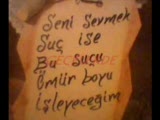 Seni Sevmek
Suç ise
Bu suçu
Ömür boyu
işleyeceğim